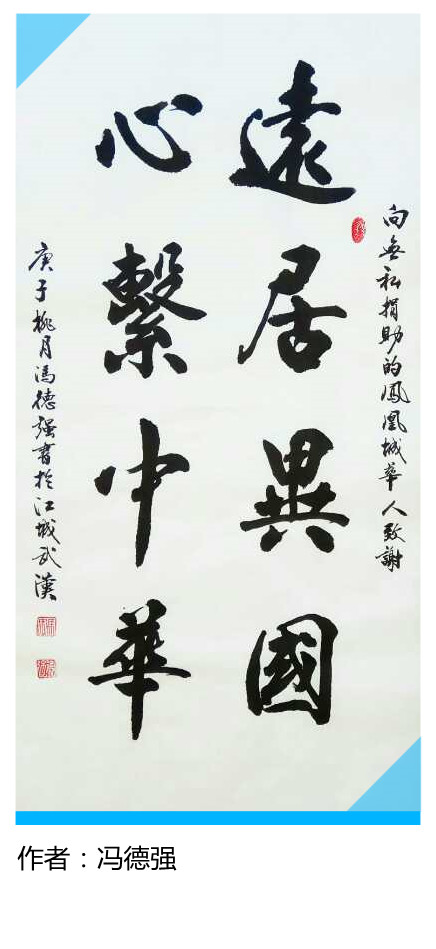 向無私捐助的鳳凰城華人致謝
遠居異國
心繫中華
庚子桃月馮德强書於江城武漢
作者：冯德强